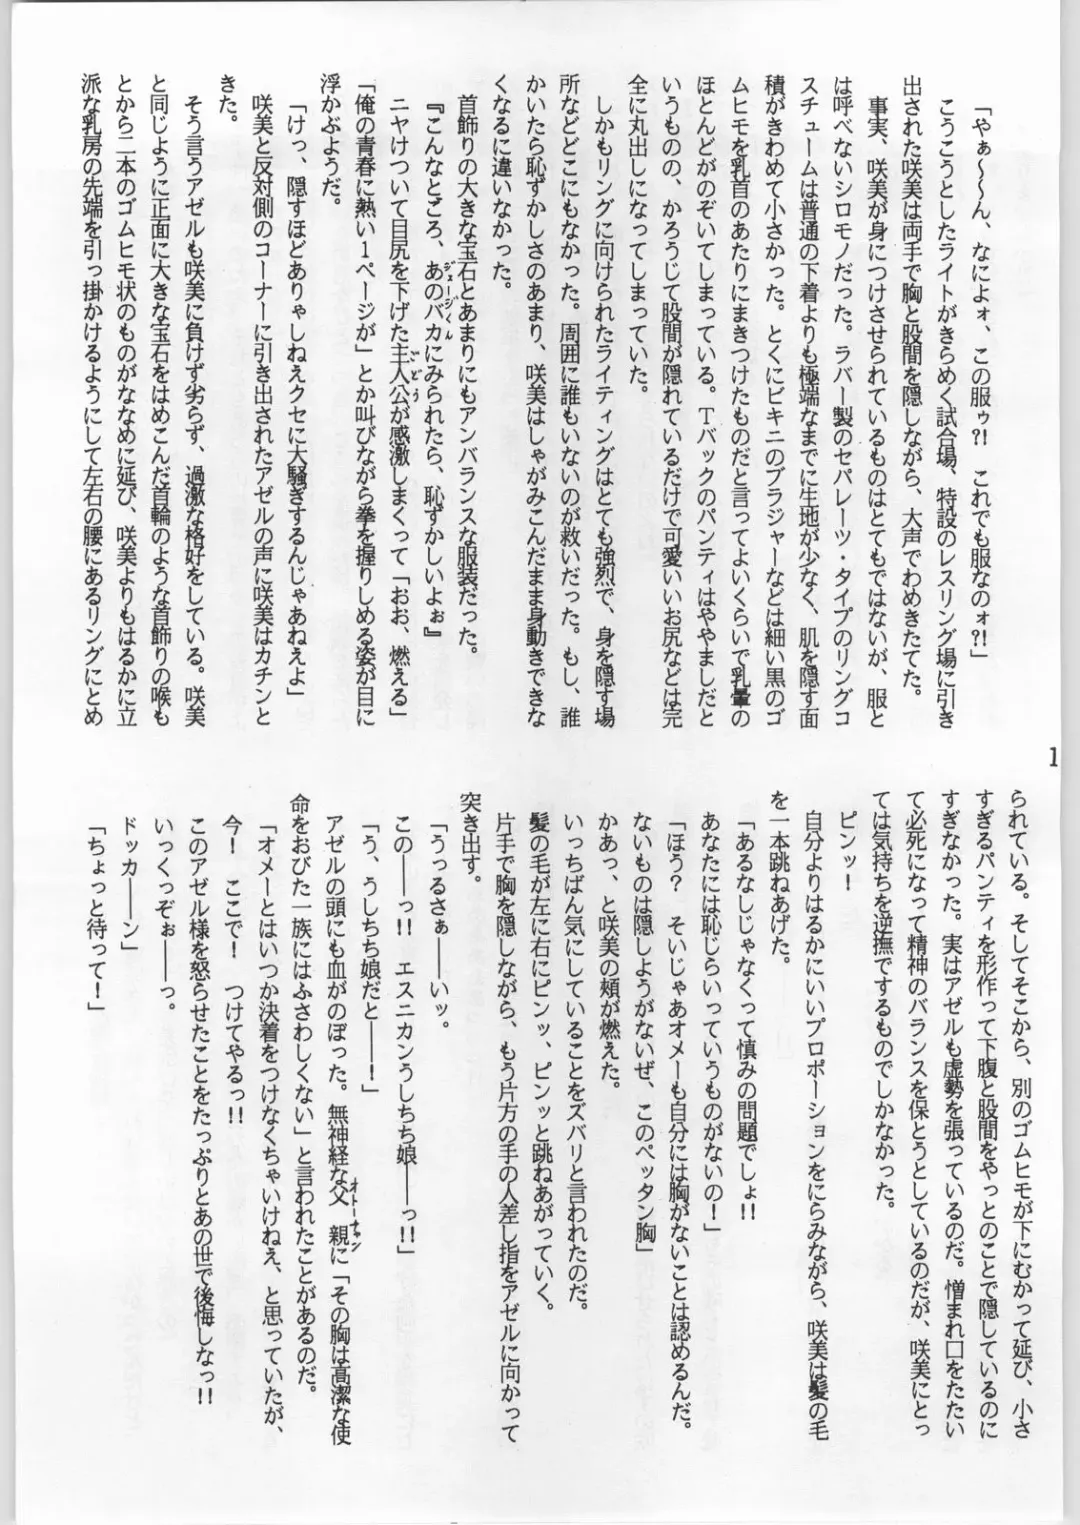 「やぁ～～～ん、なによォ、この服ゥ?!　これでも服なのォ?!」
こうこうとしたライトがきらめく試合場、特設のレスリング場に引き
出された咲美は両手で胸と股間を隠しながら、大声でわめきたてた。
事実、咲美が身につけさせられているものはとてもではないが、服と
は呼べないシロモノだった。ラバー製のセパレーツ・タイプのリングコ
スチュームは普通の下着よりも極端なまでに生地が少なく、肌を隠す面
積がきわめて小さかった。とくにビキニのブラジャーなどは細い黒のゴ
ムヒモを乳首のあたりにまきつけたものだと言ってよいくらいで乳暈の
ほとんどがのぞいてしまっている。Ｔバックのパンティはややましだと
いうものの、かろうじて股間が隠れているだけで可愛いいお尻などは完
全に丸出しになってしまっていた。
しかもリングに向けられたライティングはとても強烈で、身を隠す場
所などどこにもなかった。周囲に誰もいないのが救いだった。もし、誰
かいたら恥ずかしさのあまり、咲美はしゃがみこんだまま身動きできな
くなるに違いなかった。
首飾りの大きな宝石とあまりにもアンバランスな服装だった。
『こんなところ、あのバカにみられたら、恥ずかしいよぉ』
ニヤけついて目尻を下げた主人公が感激しまくって「おお、燃える」
「俺の青春に熱い１ページが」とか叫びながら拳を握りしめる姿が目に
浮かぶようだ。
「けっ、隠すほどありゃしねえクセに大騒ぎするんじゃあねえよ」
咲美と反対側のコーナーに引き出されたアゼルの声に咲美はカチンと
きた。
そう言うアゼルも咲美に負けず劣らず、過激な格好をしている。咲美
と同じように正面に大きな宝石をはめこんだ首輪のような首飾りの喉も
とから二本のゴムヒモ状のものがななめに延び、咲美よりもはるかに立
派な乳房の先端を引っ掛かけるようにして左右の腰にあるリングにとめ
1
られている。そしてそこから、別のゴムヒモが下にむかって延び、小さ
すぎるパンティを形作って下腹と股間をやっとのことで隠しているのに
すぎなかった。実はアゼルも虚勢を張っているのだ。憎まれ口をたたい
て必死になって精神のバランスを保とうとしているのだが、咲美にとっ
ては気持ちを逆撫でするものでしかなかった。
ピンッ！
自分よりはるかにいいプロポーションをにらみながら、咲美は髪の毛
を一本跳ねあげた。
「あるなしじゃなくって慎みの問題でしょ!!
あなたには恥じらいっていうものがないの！」
「ほう？　そいじゃあオメーも自分には胸がないことは認めるんだ。
ないものは隠しようがないぜ、このペッタン胸」
かあっ、と咲美の頬が燃えた。
いっちばん気にしていることをズバリと言われたのだ。
髪の毛が左に右にピンッ、ピンッと跳ねあがっていく。
片手で胸を隠しながら、もう片方の手の人差し指をアゼルに向かって
突き出す。
「うっるさぁ――いッ。
この――っ!!　エスニカンうしちち娘――っ!!」
「う、うしちち娘だと――！」
アゼルの頭にも血がのぼった。無神経な父　親に「その胸は高潔な使
命をおびた一族にはふさわしくない」と言われたことがあるのだ。
「オメーとはいつか決着をつけなくちゃいけねえ、と思っていたが、
今！　ここで！　つけてやるっ!!
このアゼル様を怒らせたことをたっぷりとあの世で後悔しなっ!!
いっくっぞぉ――っ。
ドッカ――ン」
「ちょっと待って！」